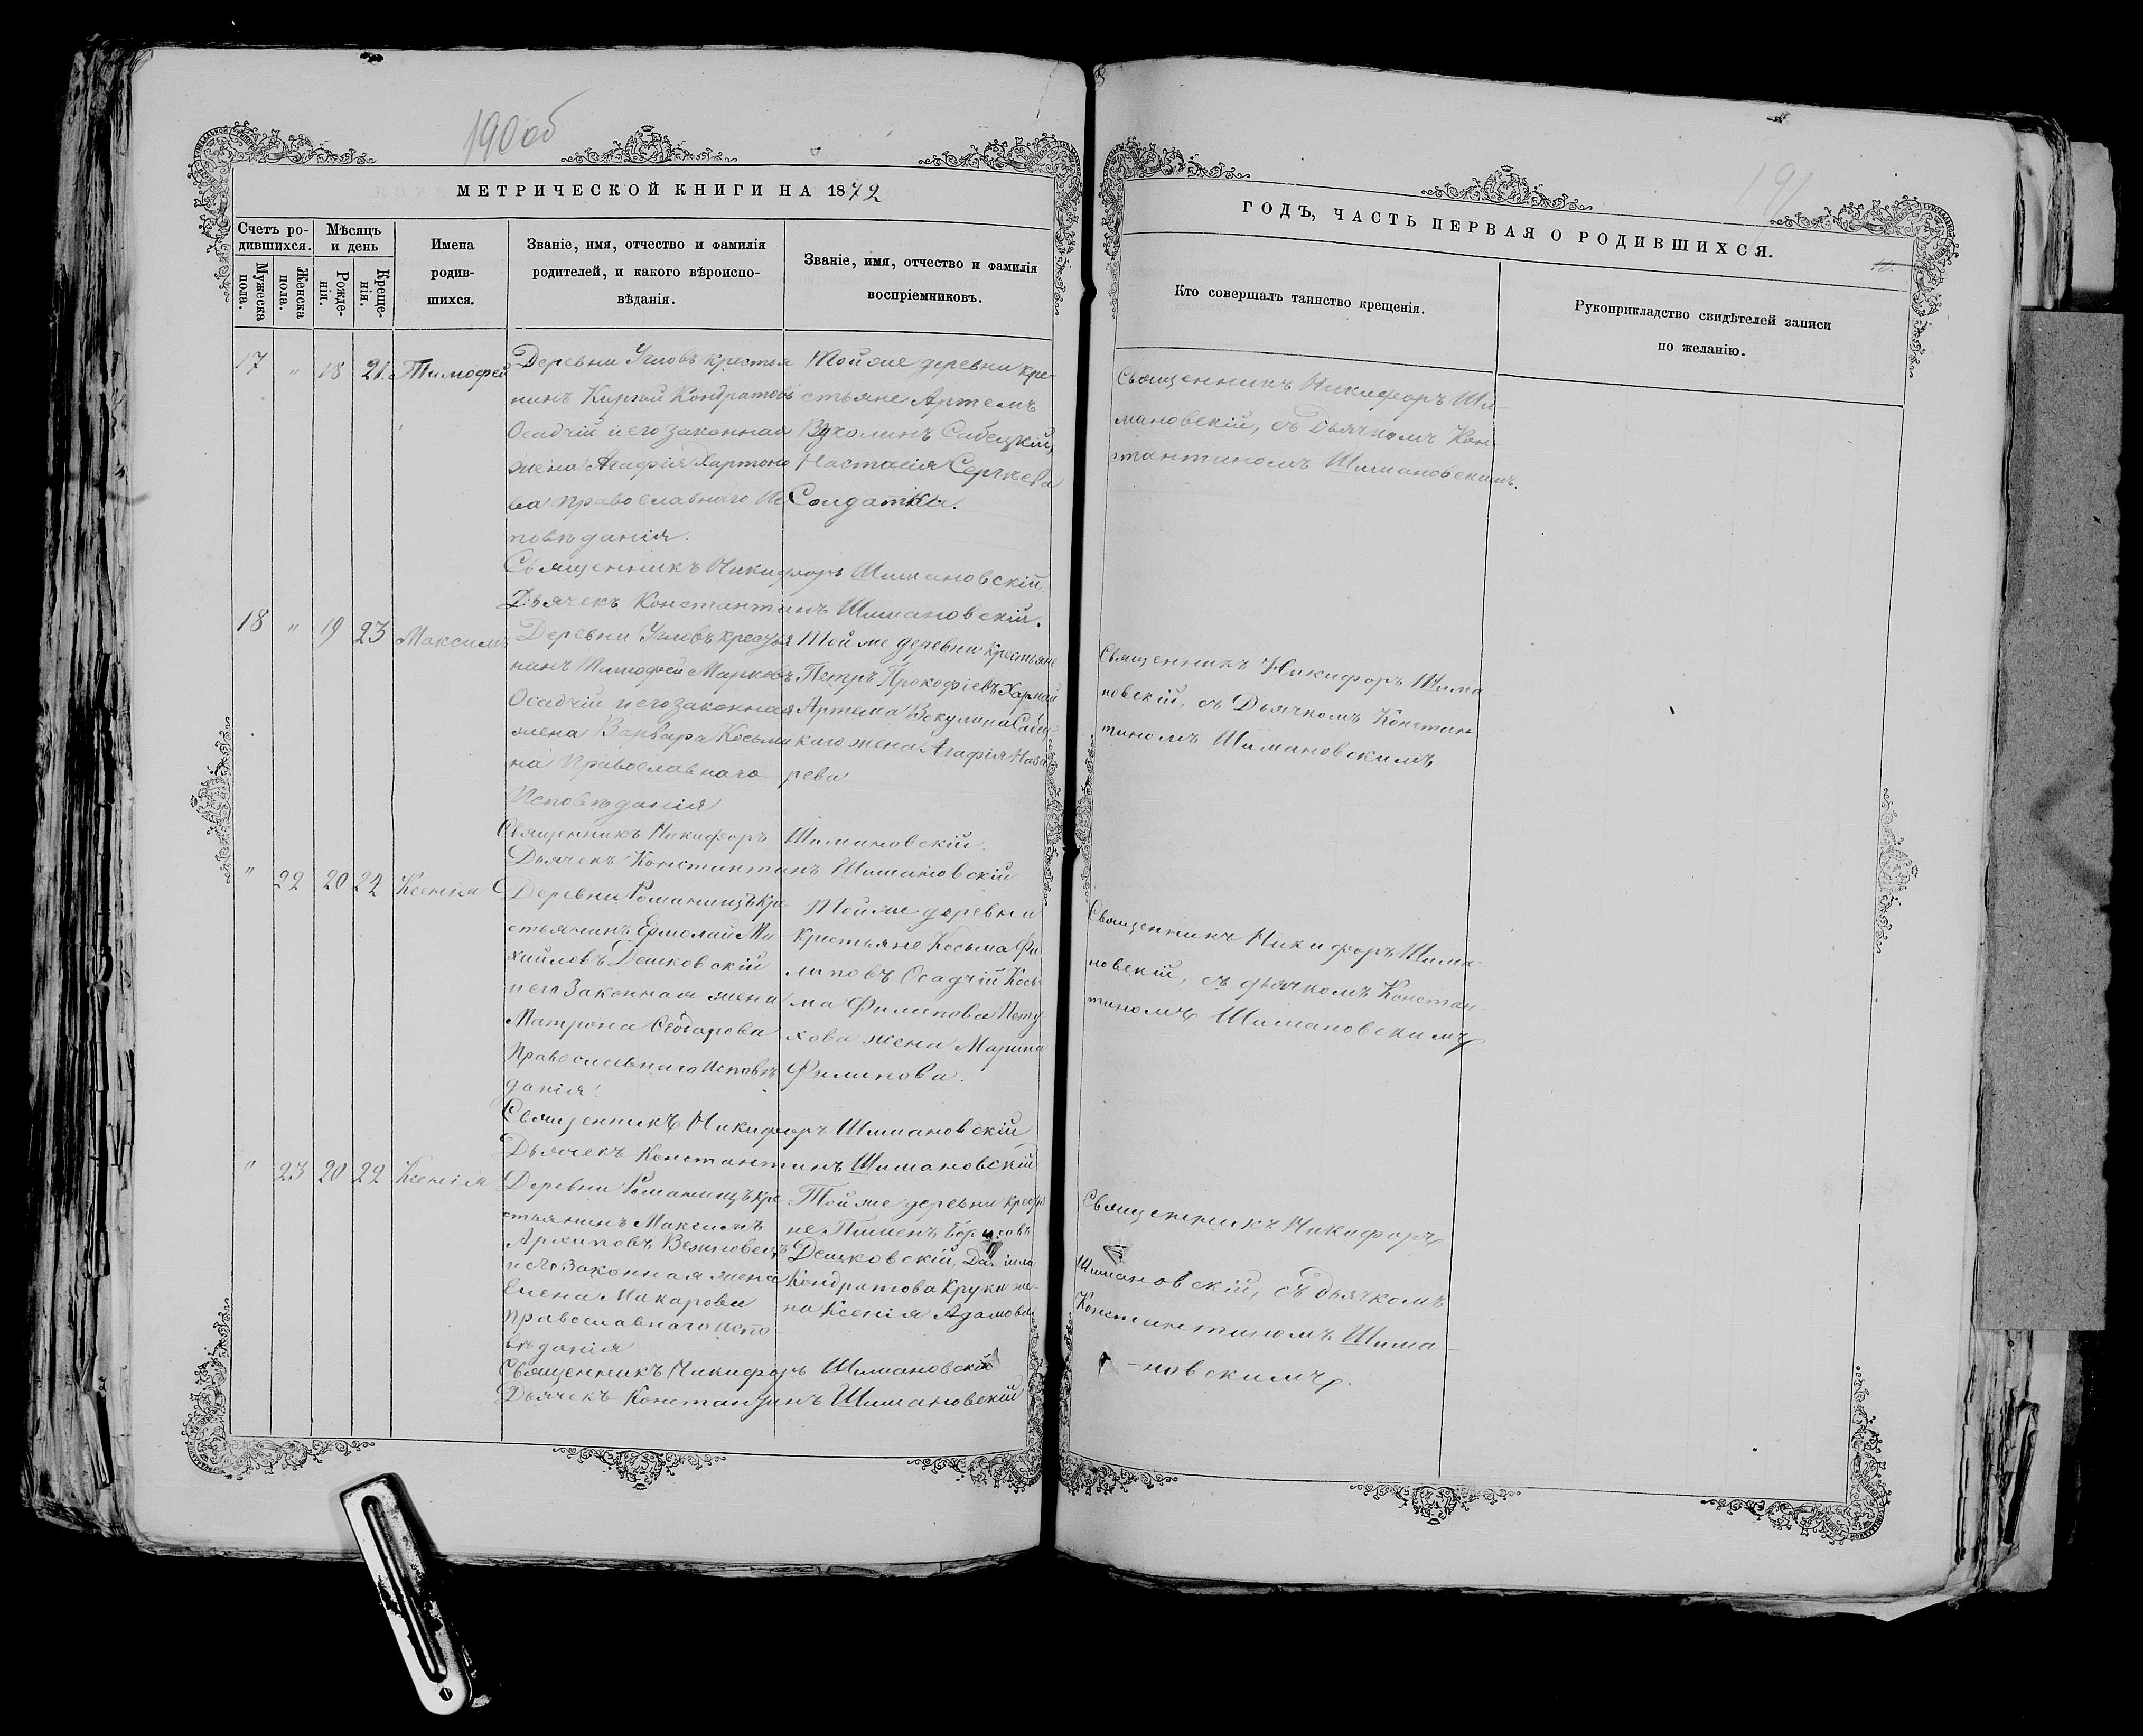 190 об
МЕТРИЧЕСКОЙ КНИГИ НА 1872
Счетъ ро-
дившихся.
Мужеска
пола.
Женска
пола.
Мѣсяцъ
и день
Рожде-
нія.
Креще-
нія.
Имена
родив-
шихся.
Званіе, имя, отчество и фамилія
родителей, и какого вѣроиспо-
вѣданія.
Званіе, имя, отчество и фамилія
воспріемниковъ.
17 " 18 21. Тимофей
Деревни Угловъ крестья
нинъ Кирилъ Кондратовъ
Осадчій и его законная
жена Агафія Харитоно
ва православнаго Ис
повѣданія.
Той же деревни кре-
стьяне Артемъ
Вуколинъ Сабецкій,
Настасія Сергѣева
Солдатка.
Священникъ Никифоръ Шимановскій
Дьячекъ Константинъ Шимановскій.
18 " 19 23 Максимъ
Деревни Угловъ крестья
нинъ Тимофей Марковъ
Осадчій и его законная
жена Варвара Косьми
на Православнаго
Исповѣданія
Той же деревни Крестьяне
Петръ Прокофіевъ
Артема Вокулина Сабец
каго жена Агафія Наза
рева
Священникъ Никифоръ Шимановскій.
Дьячекъ Константинъ Шимановскій
" 22 20 22 Ксенія
Деревни Романищъ кре
стьянинъ Ермолай Ми
хайловъ Дешковскій
и его Законная жена
Матрона Ѳеодорова
Православнаго Исповѣ
данія.
Той же деревни
Крестьяне Косьма Фи
липовъ Осадчій Кось
ма Филипова Пету
хова жена Марина
Филипова.
Священникъ Никифоръ Шимановскій
Дьячекъ Константинъ Шимановскій
" 23 20 22 Ксенія
Деревни Романищъ кре
стьянинъ Максимъ
Архиповъ Вежновецъ
и его Законная жена
Елена Макарова
Православнаго Испо-
вѣданія
Той же деревни крестья
не Пименъ Борисовъ
Дешковскій,
Кондратова Крука же-
на Ксенія Адамова
Священникъ Никифоръ Шимановскій
Дьячекъ Константинъ Шимановскій
191
ГОДЪ, ЧАСТЬ ПЕРВАЯ О РОДИВШИХСЯ.
Кто совершалъ таинство крещенія.
Рукоприкладство свидѣтелей записи
по желанію.
Священникъ Никифоръ Ши-
мановскій, съ Дьячкомъ Кон-
стантиномъ Шимановскимъ.
Священникъ Никифоръ Шима-
новскій, съ Дьячкомъ Констан
тиномъ Шимановскимъ
Священникъ Никифоръ Шима-
новскій, съ дьячкомъ Констан-
тиномъ Шимановскимъ
Священникъ Никифоръ
Шимановскій, съ дьячкомъ
Константиномъ Шима-
-новскимъ.